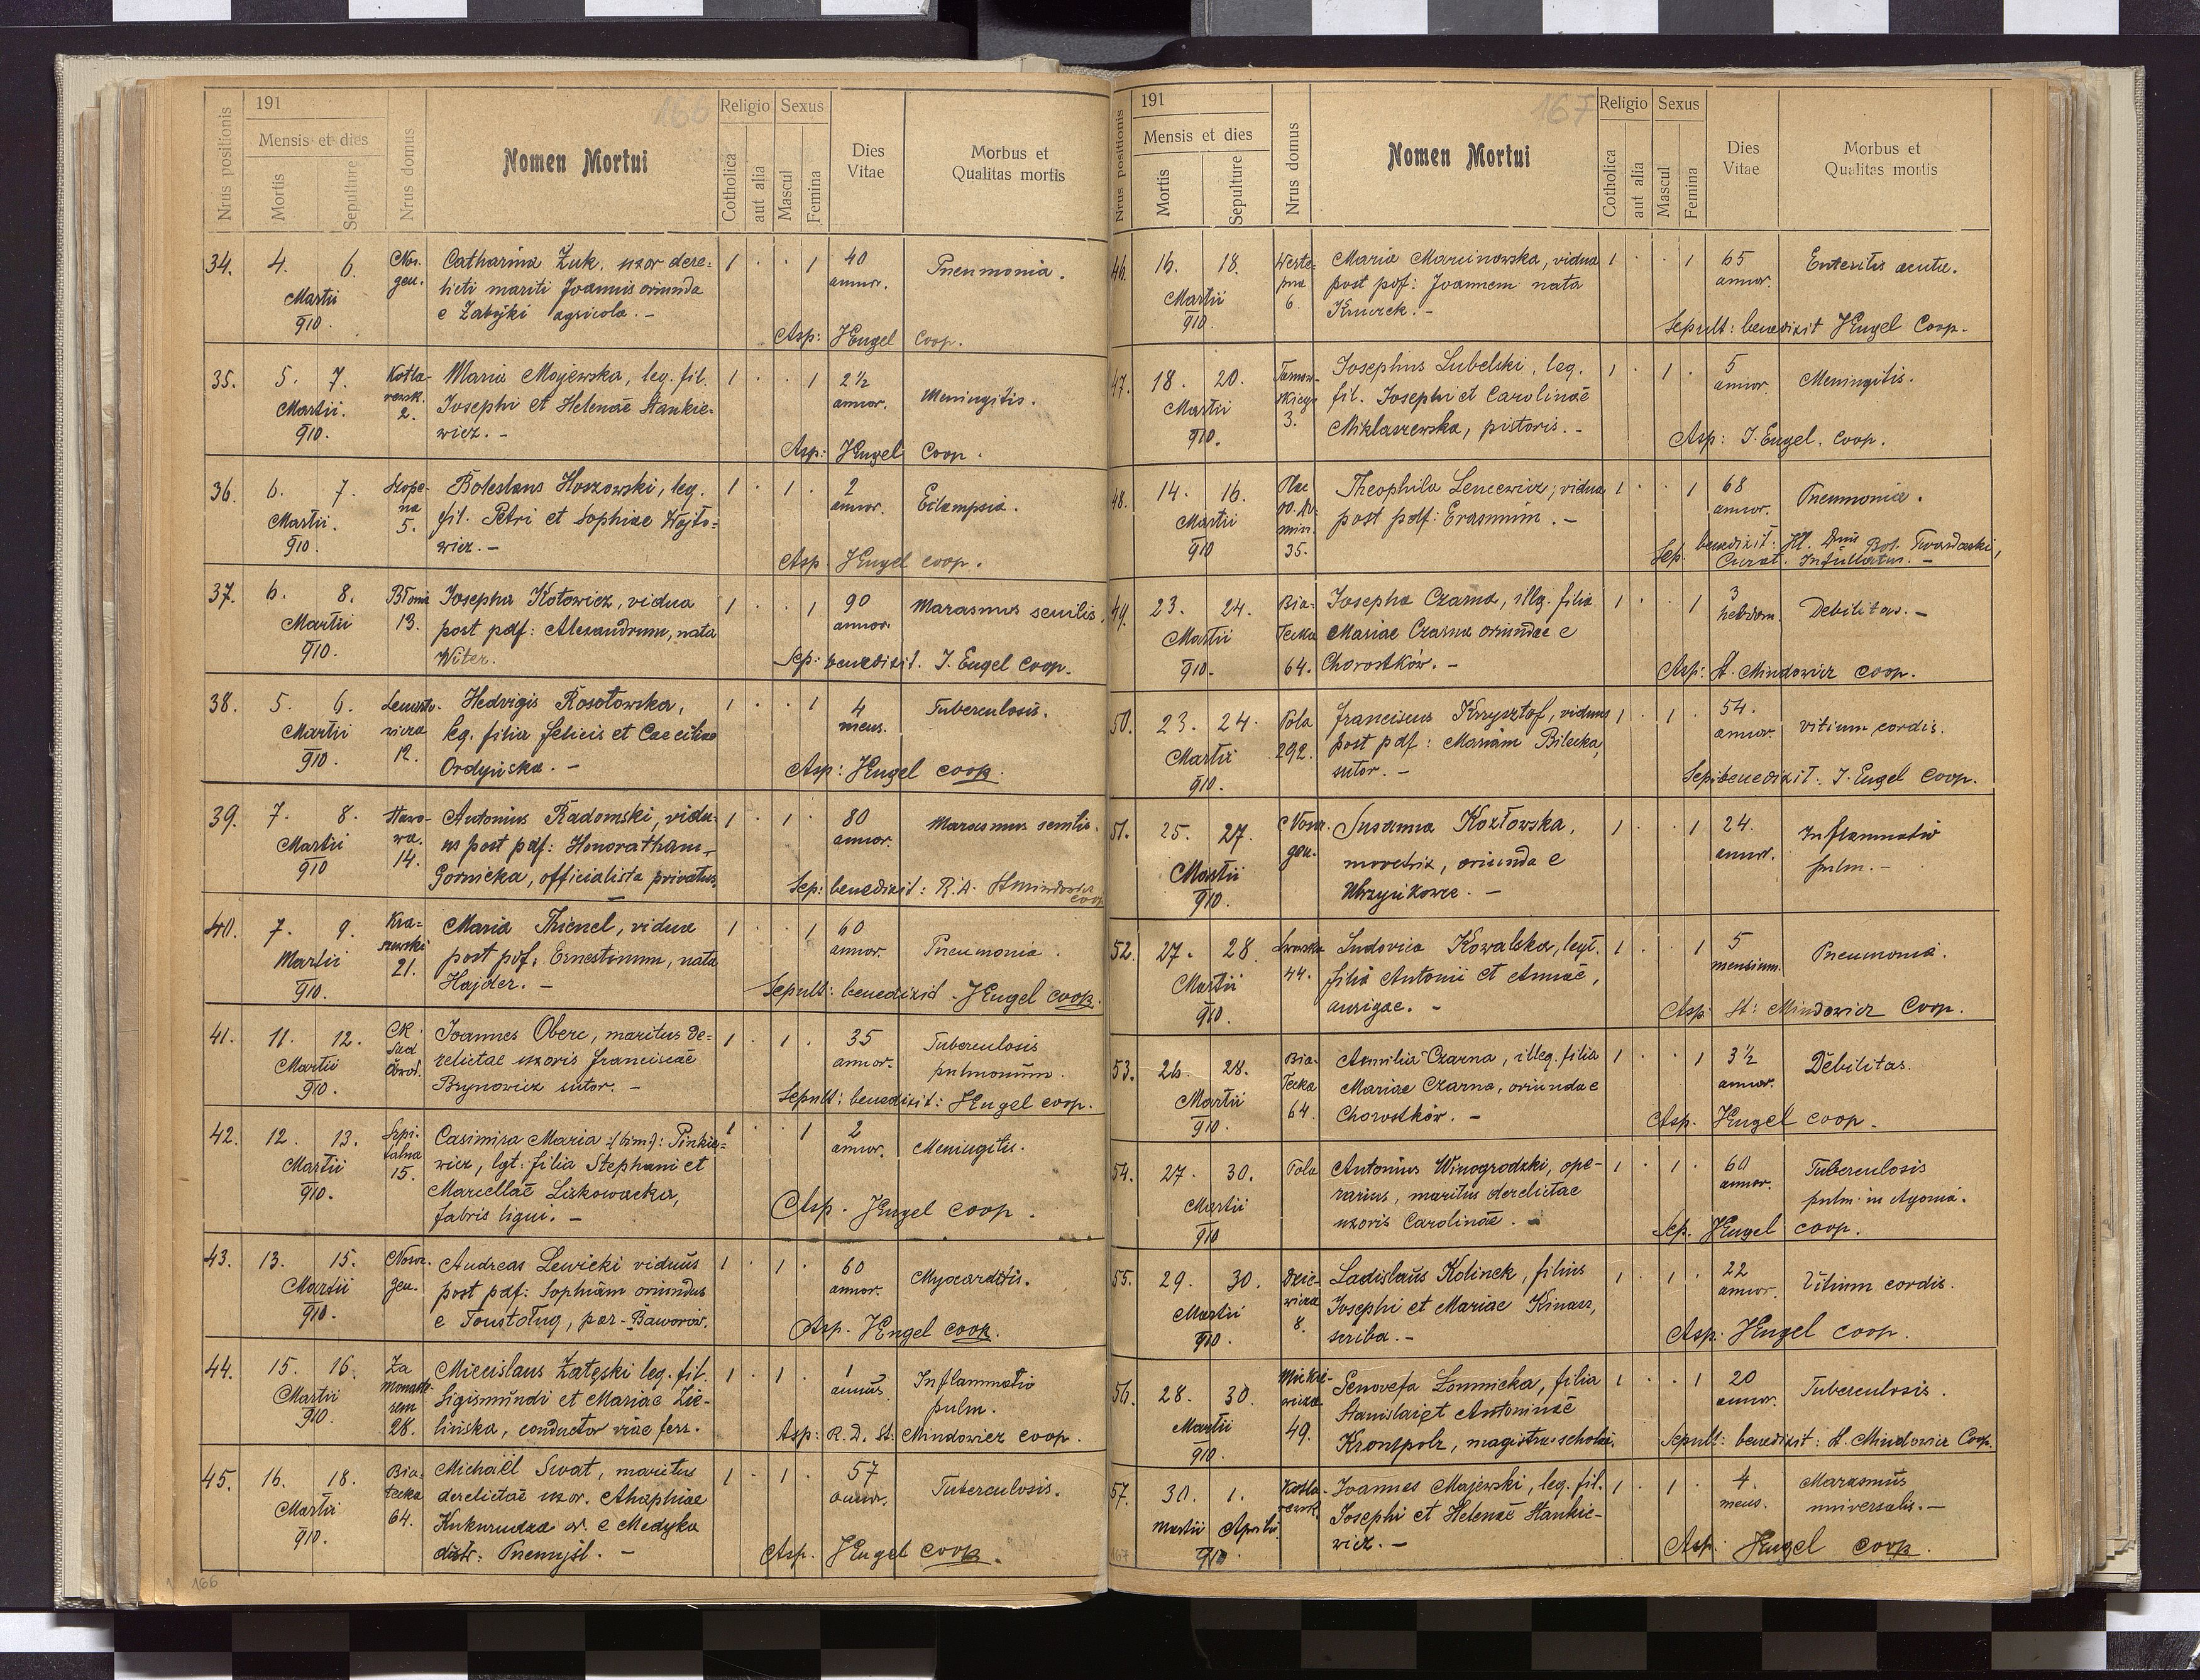 166
Nrus positionis
191
Mensis et dies
Mortis
Sepulture
Nrus domus
Nomen Mortui
Religio
Catholica
aut alia
Sexus
Mascul
Femina
Dies Vitae
Morbus et
Qualitas mortis
34. 4. 6. Martii 910.
Catharina Żuk, uxor dere=
licti mariti Joannis oriunda
e Zabójki agricola. –
1 . . 1 40 annor. Pneumonia.
Asp: JEngel Coop.
35. 5. 7. Martii. 910. 2.
Maria Moyewska, leg. fil.
Josephi et Helenae Stankie=
wicz. –
1 . . 1 2½ annor. Meningitis.
Asp: JEngel Coop.
36. 6. 7. Martii. 910. Szope-
na
5.
Boleslaus Hoszowski, leg.
fil. Petri et Sophiae Wojto=
wicz. –
1 . 1 . 2 annor. Eclampsia.
Asp. JEngel coop.
37. 6. 8. Martii 910. Błonia
13.
Josepha Kotowicz, vidua
post pdf: Alexandrum, nata
Witer.
1 . . 1 90 annor. Marasmus senilis.
Sep: benedixit. J. Engel Coop.
38. 5. 6. Martii 910. 12.
Hedvigis Rosołowska,
leg. filia Felicis et Caeciliae
Ordyńska. –
1 . . 1 4 mens. Tuberculosis.
Asp: JEngel coop.
39. 7. 8. Martii 910 14.
Antonius Radomski, vidu-
us post pdf: Honoratham
Gornicka, officialista privatus.
1 . 1 . 80 annor. Marasmus senilis.
Sep: benedixit: R.D. StMindowicz
coop
40. 7. 9. Martii 910. Kra=
szewski
21.
Maria Thienel, vidua
post pdf. Ernestinum, nata
Hajder. –
1 . . 1 60 annor. Pneumonia.
Sepult: benedixit. JEngel coop.
41. 11. 12. Martii 910. CK.
Sąd
Obwod.
Joannes Oberc, maritus de=
relictae uxoris Franciscae
Brynowicz sutor. –
1 . 1 . 35 annor. Tuberculosis
pulmonum.
Sepult: benedixit: JEngel coop.
42. 12. 13. Martii 910. Szpi-
talna
15.
Casimira Maria (bim.): Pinkie=
wicz, lgt: filia Stephani et
Marcellae Liskowacka,
fabris ligni. –
1 . . 1 2 annor. Meningitis.
Asp. JEngel coop.
43. 13. 15. Martii 910. Nosu.
gen.
Andreas Lewicki viduus
post pdf: Sophiam oriundus
e Toustoług, par. Baworów.
1 . 1 . 60 annor. Myocarditis.
Asp. JEngel coop.
44. 15. 16. Martii 910. Za
Monaste-
rem
28.
Miecislaus Załęski leg. fil.
Sigismundi et Mariae Zie-
lińska, conductor viae ferr.
1 . 1 . 1 annus Inflammatio
pulm.
Asp: R.D. St: Mindowicz coop.
45. 16. 18. Martii 910. Bia-
łecka
64.
Michaël Swat, maritus
derelictae uxor. Ahaphiae
Kukurudza or. e Medyka
distr: Przemyśl. –
1 . 1 . 57 annor. Tuberculosis.
Asp. JEngel coop.
166
167
Nrus positionis
191
Mensis et dies
Mortis
Sepulture
Nrus domus
Nomen Mortui
Religio
Catholica
aut alia
Sexus
Mascul
Femina
Dies Vitae
Morbus et
Qualitas mortis
46. 16. 18. Martii 910. 6.
Maria Marcinowska, vidua
post pdf: Joannem nata
1 . . 1 65 annor. Enteritis acuta.
Sepult: benedixit JEngel Coop.
47. 18. 20. Martii 910. Tarnow-
skiego
3.
Josephus Lubelski, leg.
fil. Josephi et Carolinae
Miklaszewska, pistoris. –
1 . 1 . 5 annor. Meningitis.
Asp: J. Engel. Coop.
48. 14. 16. Martii 910 Plac
35.
Theophila Lencewicz, vidua
post pdf: Erasmum. –
1 . . 1 68 annor. Pneumonia.
Sep. benedixit: Dnus Bol. Twardowski,
Curat. Infullatus. –
49. 23. 24. Martii 910. Bia-
łecka
64.
Josepha Czarna, illg. filia
Mariae Czarna oriundae e
Chorostków. –
1 . . 1 3 hebdom. Debilitas. –
Asp: St. Mindowicz coop.
50. 23. 24. Martii 910. Pola
292.
Franciscus Krzysztof, viduus
post pdf: Mariam Bilecka,
sutor. –
1 . 1 . 54. annor. Vitium cordis.
Sep: benedixit. J. Engel Coop.
51. 25. 27. Martii 910. Nosu.
gen.
Susanna Kozłowska,
oriunda e
1 . . 1 24. annor. Inflammatio
pulm. –
52. 27. 28. Martii 910. Lwowska
44.
Ludovica Kowalska, legt.
filia Antonii et Annae,
aurigae. –
1 . . 1 5 mensium. Pneumonia.
Asp: St: Mindowicz Coop.
53. 26. 28. Martii 910. Bia-
łecka
64.
Aemilia Czarna, illeg. filia
Mariae Czarna, oriundae
Chorostków. –
1 . . 1 3½ annor. Debilitas.
Asp. JEngel coop.
54. 27. 30. Martii 910 Pola
Antonius Winogrodzki, ope-
rarius, maritus derelictae
uxoris Carolinae. –
1 . 1 . 60 annor. Tuberculosis
pulm. in Agonia.
Sep. JEngel coop.
55. 29. 30. Martii 910. 8.
Ladislaus Kolinek, filius
Josephi et Mariae Kinasz,
scriba. –
1 . 1 . 22 annor. Vitium cordis.
Asp: JEngel coop.
56. 28. 30. Martii 910. Mickie-
wicza
49.
Genovefa Łomnicka, filia
Stanislai et Antoninae
Krontpolz, magistra scholae.
1 . . 1 20 annor. Tuberculosis.
Sepult: benedixit: St. Mindowicz Coop.
57. 30. 1. Martii Aprilis 910.
Joannes Majewski, leg. fil.
Josephi et Helenae Stankie-
wicz. –
1 . 1 . 4. mens. Marasmus
universalis. –
Asp: JEngel coop.
167